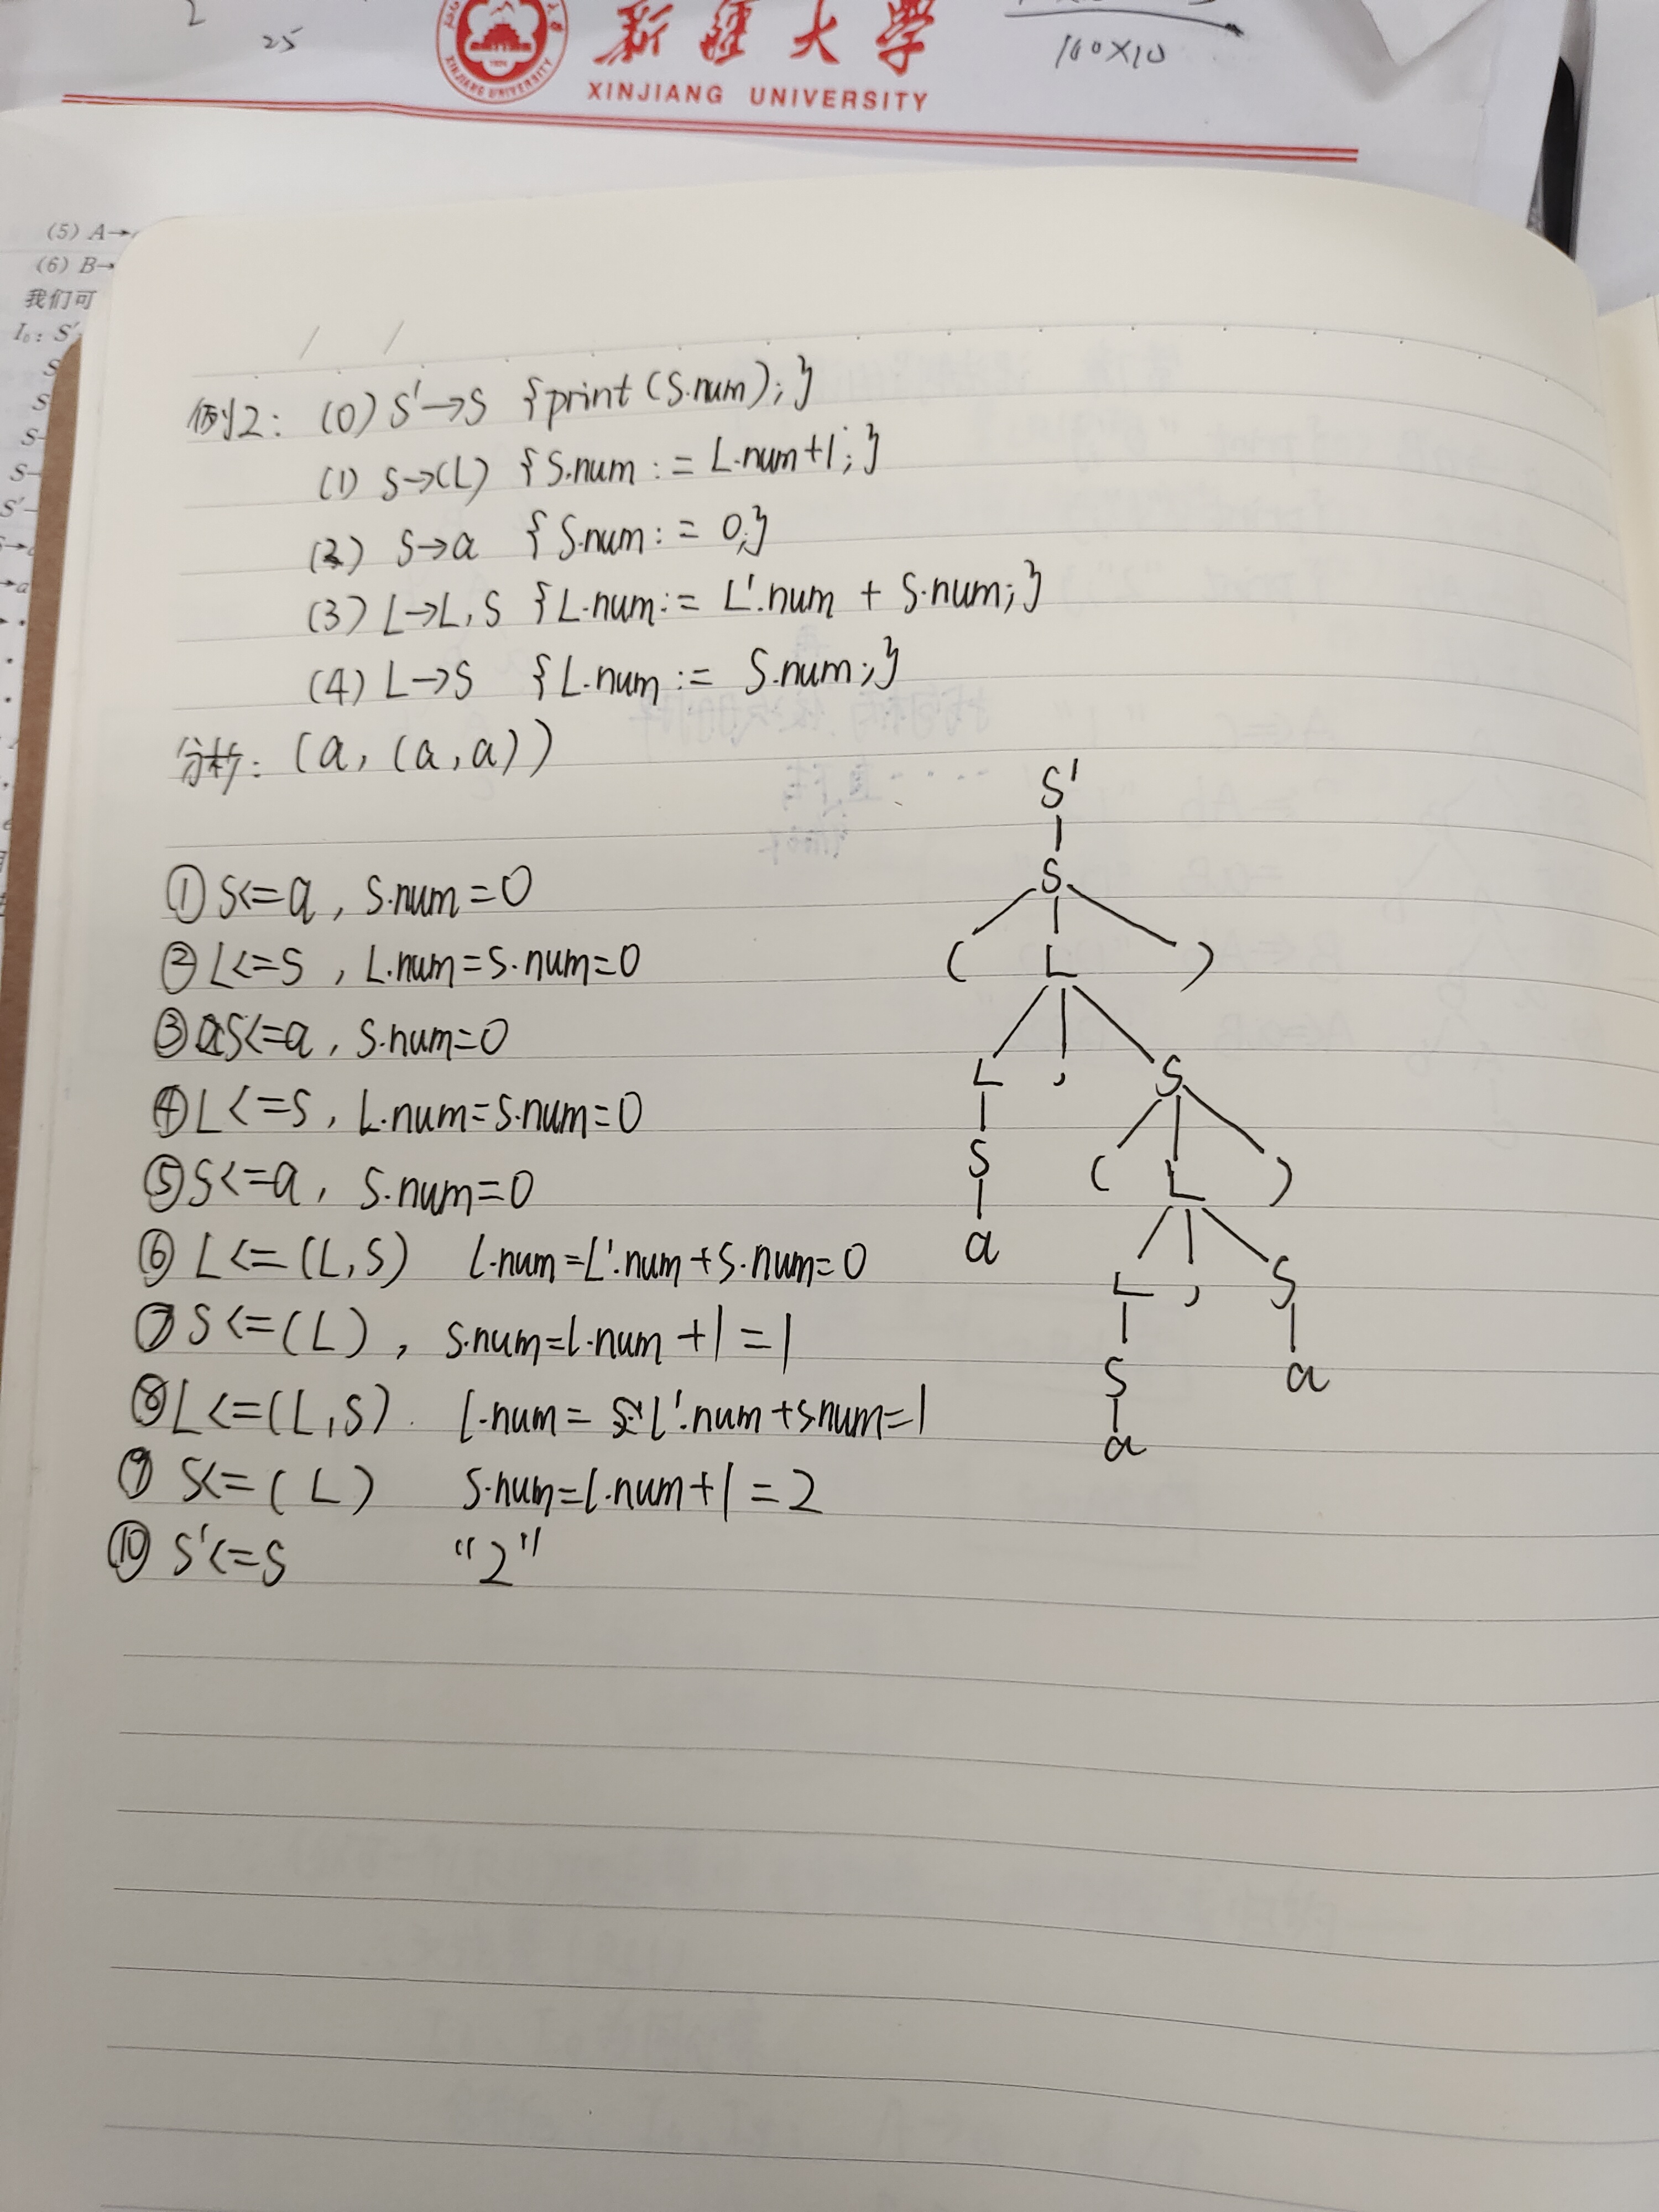 2
25
新疆大学
XINJIANG UNIVERSITY
XINJIANG UNIVERSITY
100×10
(5) A→
(6) B→
我们可
I₀: S'
例2: (0) S'→S {print(S.num);}
(1) S→(L) {S.num := L.num+1;}
(2) S→a {S.num := 0;}
(3) L→L,S {L.num := L'.num + S.num;}
(4) L→S {L.num := S.num;}
分析: (a, (a,a))
① S<=a, S.num=0
② L<=S, L.num=S.num=0
③ S<=a, S.num=0
④ L<=S, L.num=S.num=0
⑤ S<=a, S.num=0
⑥ L<=(L,S) L.num=L'.num+S.num=0
⑦ S<=(L), S.num=L.num+1=1
⑧ L<=(L,S). L.num=L'.num+S.num=1
⑨ S<=(L) S.num=L.num+1=2
⑩ S'<=S "2"
S'
S
( L )
L , S
S ( L )
a L , S
S a
a